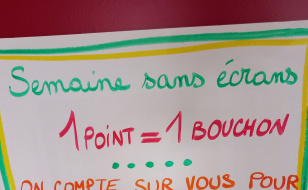 Semaine sans écrans
1 POINT = 1 BOUCHON
ON COMPTE SUR VOUS POUR